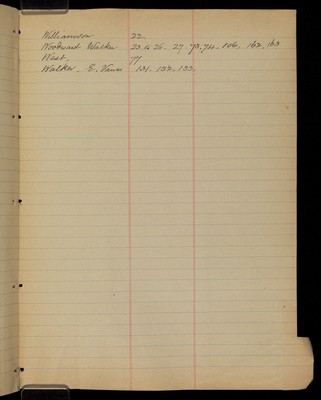 Williamson 22.
Woodward Walker 23 to 26. 27 73, 74. 106. 162, 163
West. 77
Walker. E. 131. 132. 133.